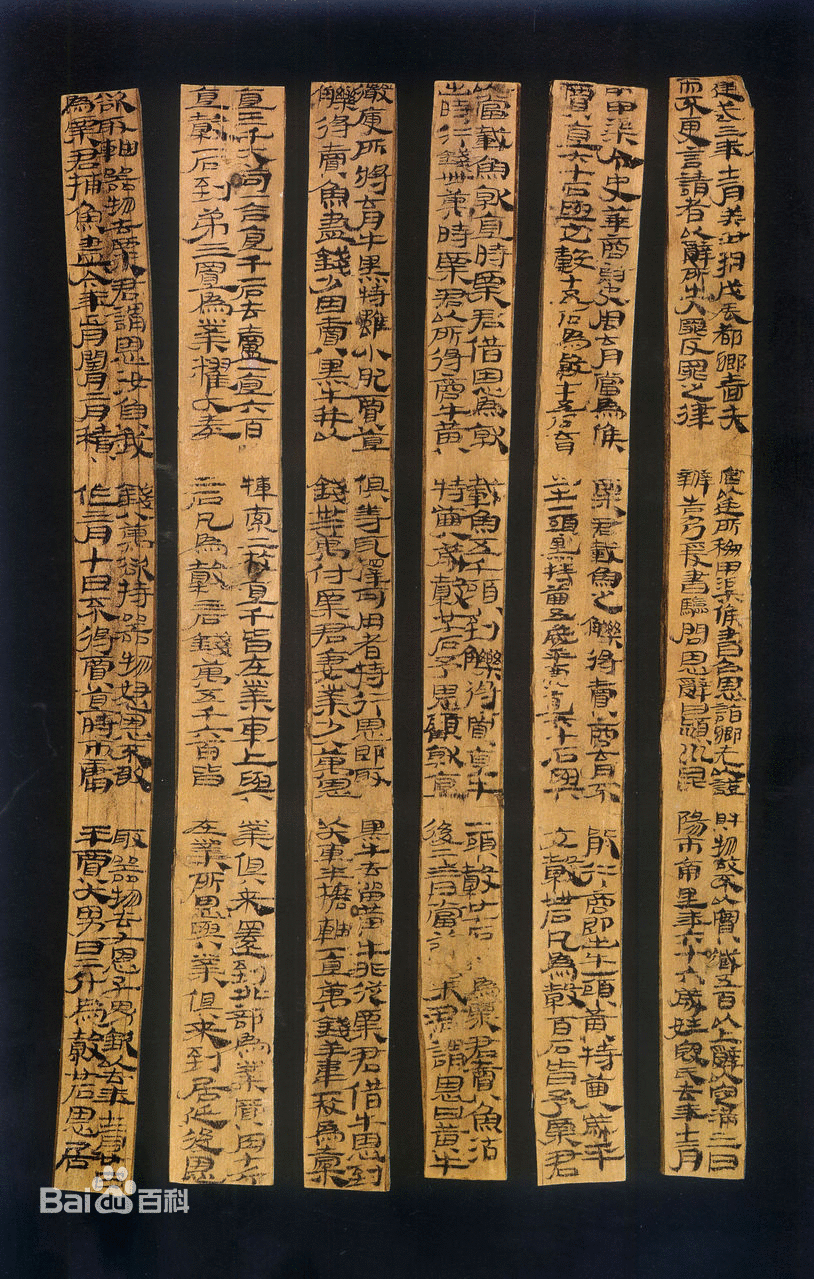 建武三年十二月癸丑朔戊辰都鄉嗇夫宮以廷所移甲渠候書召恩詣鄉先以證財物故不以實臧五百以上辭以定滿三日
而不更言請者以辭所出入罪反罪之律辨告乃爰書驗問恩辭曰潁川昆陽市南里年六十六歲姓寇氏去年十二月
中甲渠令史華商尉史周育當為候粟君載魚之觻得賣商育不能行商即出牛一頭黃特齒八歲平
賈直六十石與交穀十五石為穀七十五石育出牛一頭黑特齒五歲平賈直六十石與交穀卌石凡為穀百石皆予粟君
以當載魚就直時粟君借恩為就載魚五千頭到觻得賈直牛一頭穀廿七石約為粟君賣魚沽
出時行錢卌萬時粟君以所得商牛黃特齒八歲穀廿七石予恩顧就直後二三日當發粟君謂恩曰黃牛
微庾所將育牛黑特雖小肥賈直俱等耳擇可用者持行恩即取黑牛去留黃牛非從粟君借牛恩到
觻得賣魚盡錢少因賣黑牛并以錢卅二萬付粟君妻業少八萬恩以大車半𣝛軸一直萬錢羊韋一枚為橐
直三千大笥一合直千一石去盧一直六百𢴨索二枚直千皆在業車上與業俱來還到北部為業買肉十斤
直穀一石到第三置為業糴大麥二石凡為穀三石錢萬五千六百皆在業所恩與業俱來到居延後恩
欲取軸器物去粟君謂恩汝負我錢八萬欲持器物怒恩不敢取器物去又恩子男欽以去年十二月廿日
為粟君捕魚盡今年正月閏月二月積作三月十日不得賈直時市庸平賈大男日二斗為穀廿石恩居
Baidu百科